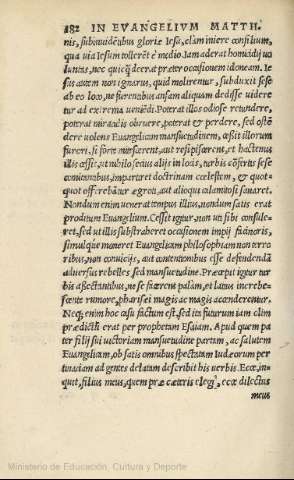 182 IN EVANGELIVM MATTH.
nis, subinuidẽtibus gloriæ Iesu, clam iniere consilium,
qua uia Iesum tollerẽt è medio. Iam aderat homicidij uo
luntas, nec quicq̃ deerat præter occasionem idoneam. Ie
sus autem non ignarus, quid molirentur, subduxit sese
ab eo loco, ne furentibus ansam aliquam dedisse uidere
tur ad extrema ueniẽdi. Poterat illos odiose retundere,
poterat miraculis obruere, poterat & perdere, sed ostẽ
dere uolens Euangelicam mansuetudinem, cessit illorum
furori, si forte mitescerent, aut resipiscerent, et hactenus
illis cessit, ut nihilo secius alijs in locis, turbis cõfertis sese
comitantibus, impartiret doctrinam cœlestem, & quot-
quot offerebãtur ægroti, aut alioqui calamitosi sanaret.
Nondum enim uenerat tempus illius, nondum satis erat
proditum Euangelium. Cessit igitur, non ut sibi consule-
ret, sed ut illis substraheret occasionem impij facinoris,
simulque moneret Euangelicam philosophiam non terro
ribus, non conuicijs, aut contentionibus esse defendendã
aduersus rebelles, sed mansuetudine. Præcepit igitur tur
bis assectantibus, ne se facerent palàm, et latius increbe-
scente rumore, pharisæi magis ac magis accenderentur.
Neq; enim hoc casu factum est, sed ita futurum iam olim
prædictũ erat per prophetam Esaiam. Apud quem pa
ter filij sui uictoriam mansuetudine partam, ac salutem
Euangelicam, ob satis omnibus spectatam Iudæorum per
tinaciam ad gentes delatam describit his uerbis. Ecce, in-
quit, filius meus, quem præ cæteris elegi, ecce dilectus
meus
Ministerio de Educación, Cultura y Deporte